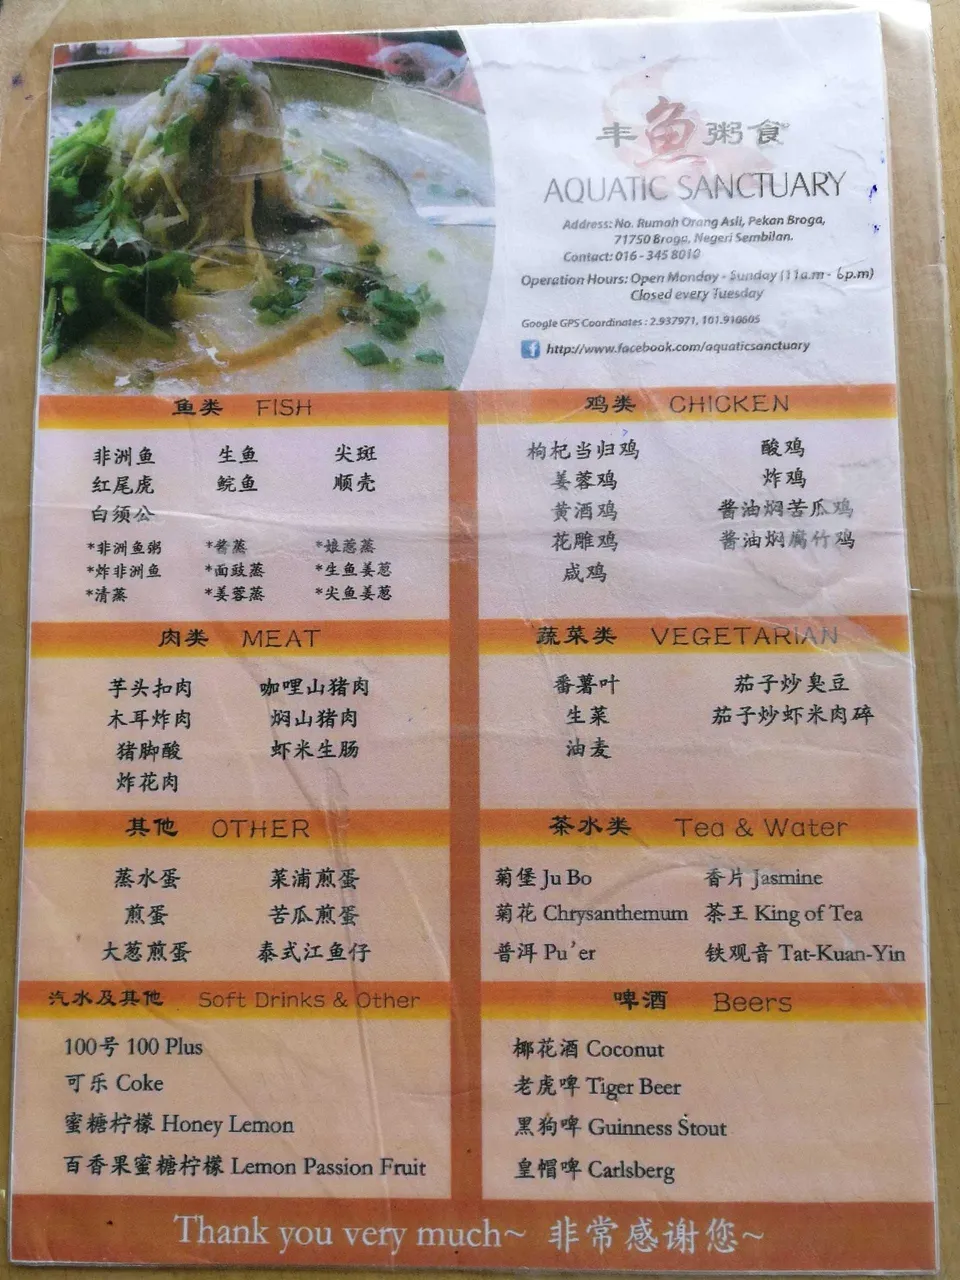 丰鱼粥食
AQUATIC SANCTUARY
Address: No. Rumah Orang Asli, Pekan Broga,
71750 Broga, Negeri Sembilan.
Contact: 016 - 345 8010
Operation Hours: Open Monday - Sunday (11a.m - 6p.m)
Closed every Tuesday
Google GPS Coordinates : 2.937971, 101.910605
http://www.facebook.com/aquaticsanctuary
鱼类 FISH
非洲鱼 生鱼 尖斑
红尾虎 鲩鱼 顺壳
白须公
*非洲鱼粥 *酱蒸 *娘惹蒸
*炸非洲鱼 *面豉蒸 *生鱼姜葱
*清蒸 *姜蓉蒸 *尖鱼姜葱
鸡类 CHICKEN
枸杞当归鸡 酸鸡
姜蓉鸡 炸鸡
黄酒鸡 酱油焖苦瓜鸡
花雕鸡 酱油焖腐竹鸡
咸鸡
肉类 MEAT
芋头扣肉 咖哩山猪肉
木耳炸肉 焖山猪肉
猪脚酸 虾米生肠
炸花肉
蔬菜类 VEGETARIAN
番薯叶 茄子炒臭豆
生菜 茄子炒虾米肉碎
油麦
其他 OTHER
蒸水蛋 菜浦煎蛋
煎蛋 苦瓜煎蛋
大葱煎蛋 泰式江鱼仔
茶水类 Tea & Water
菊堡 Ju Bo 香片 Jasmine
菊花 Chrysanthemum 茶王 King of Tea
普洱 Pu'er 铁观音 Tat-Kuan-Yin
汽水及其他 Soft Drinks & Other
100号 100 Plus
可乐 Coke
蜜糖柠檬 Honey Lemon
百香果蜜糖柠檬 Lemon Passion Fruit
啤酒 Beers
椰花酒 Coconut
老虎啤 Tiger Beer
黑狗啤 Guinness Stout
皇帽啤 Carlsberg
Thank you very much~ 非常感谢您~